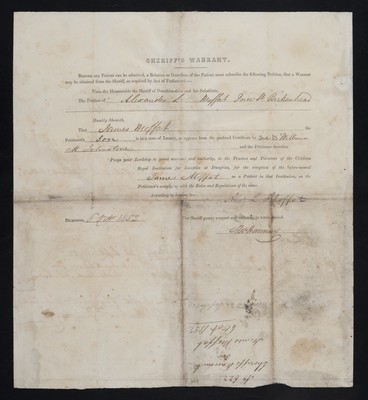 SHERIFF'S WARRANT.
BEFORE any Patient can be admitted, a Relation or Guardian of the Patient must subscribe the following Petition, that a Warrant
may be obtained from the Sheriff, as required by Act of Parliament:—
Unto the Honourable the Sheriff of Dumfriesshire and his Substitute,
The Petition of Alexander L. Moffat
Humbly Sheweth,
That James Moffat the
Petitioner's Son is in a state of Lunacy, as appears from the prefixed Certificate by
Johnstone and the Petitioner desiring,
Prays your Lordship to grant warrant and authority, to the Trustees and Directors of the Crichton
Royal Institution for Lunatics at Dumfries, for the reception of the
James Moffat as a Patient in that Institution, on the
Petitioner's complying with the Rules and Regulations of the same.
According to Justice, &c.
Alex L Moffat
DUMFRIES, 6 1852 The Sheriff grants warrant and authority as above craved.
No 622
Sheriff's Warrant
James Moffat